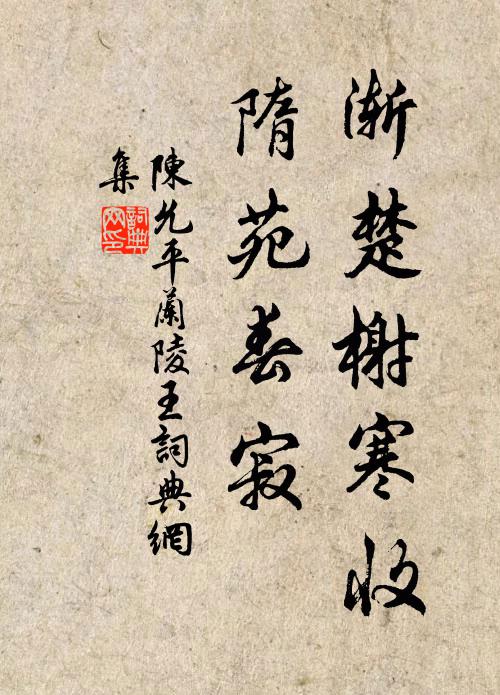 渐楚榭寒收
隋苑春寂
陳允平蘭陵王詞典網
集
詞典网印